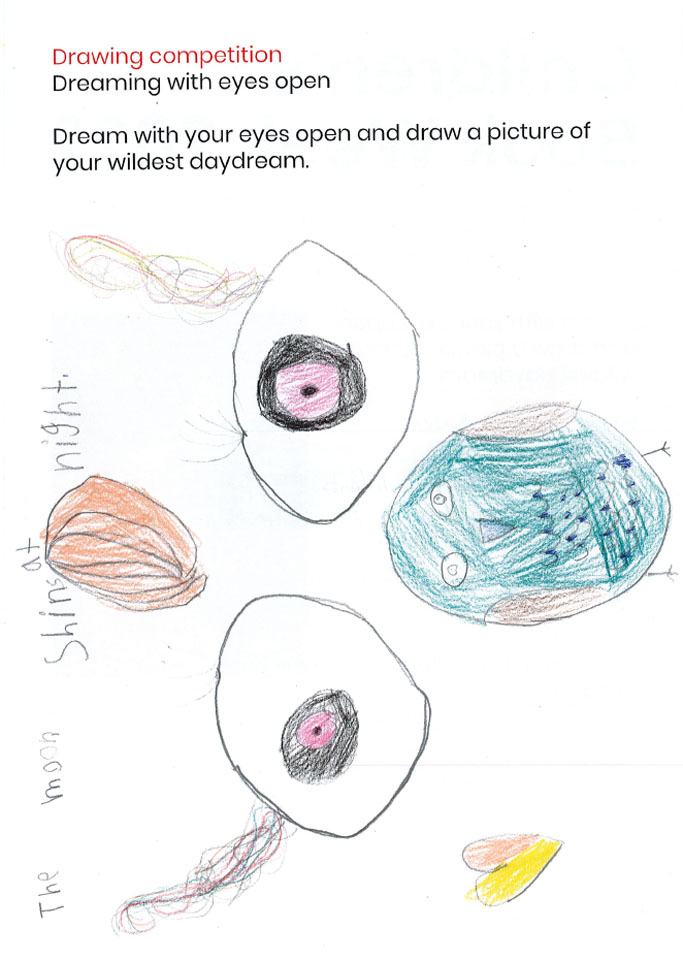 Drawing competition
Dreaming with eyes open
Dream with your eyes open and draw a picture of
your wildest daydream.
The moon Shins at night.